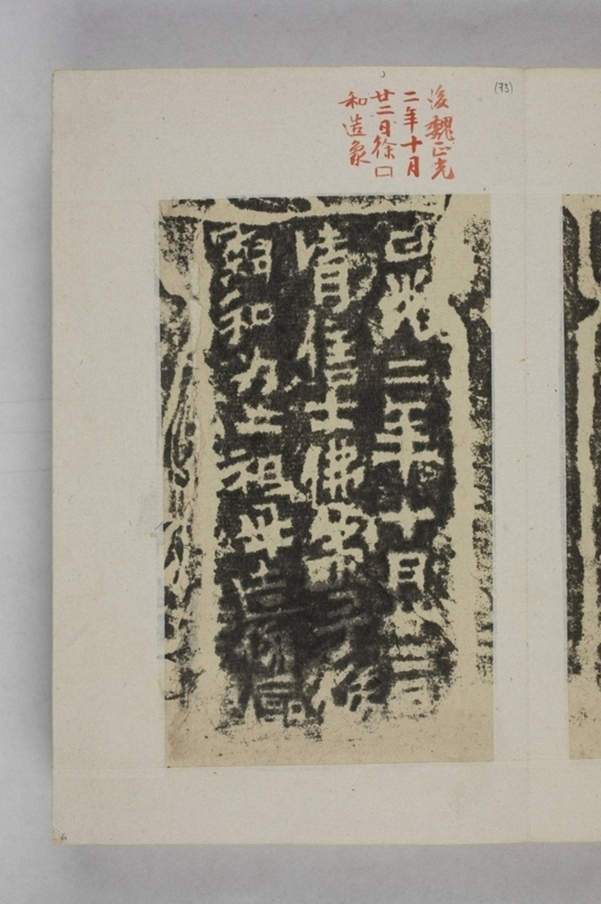 (73)
後魏正光
二年十月
廿二日徐□
和造象
正光二年十月廿二日
清信士佛弟子徐
和為亡祖母造像